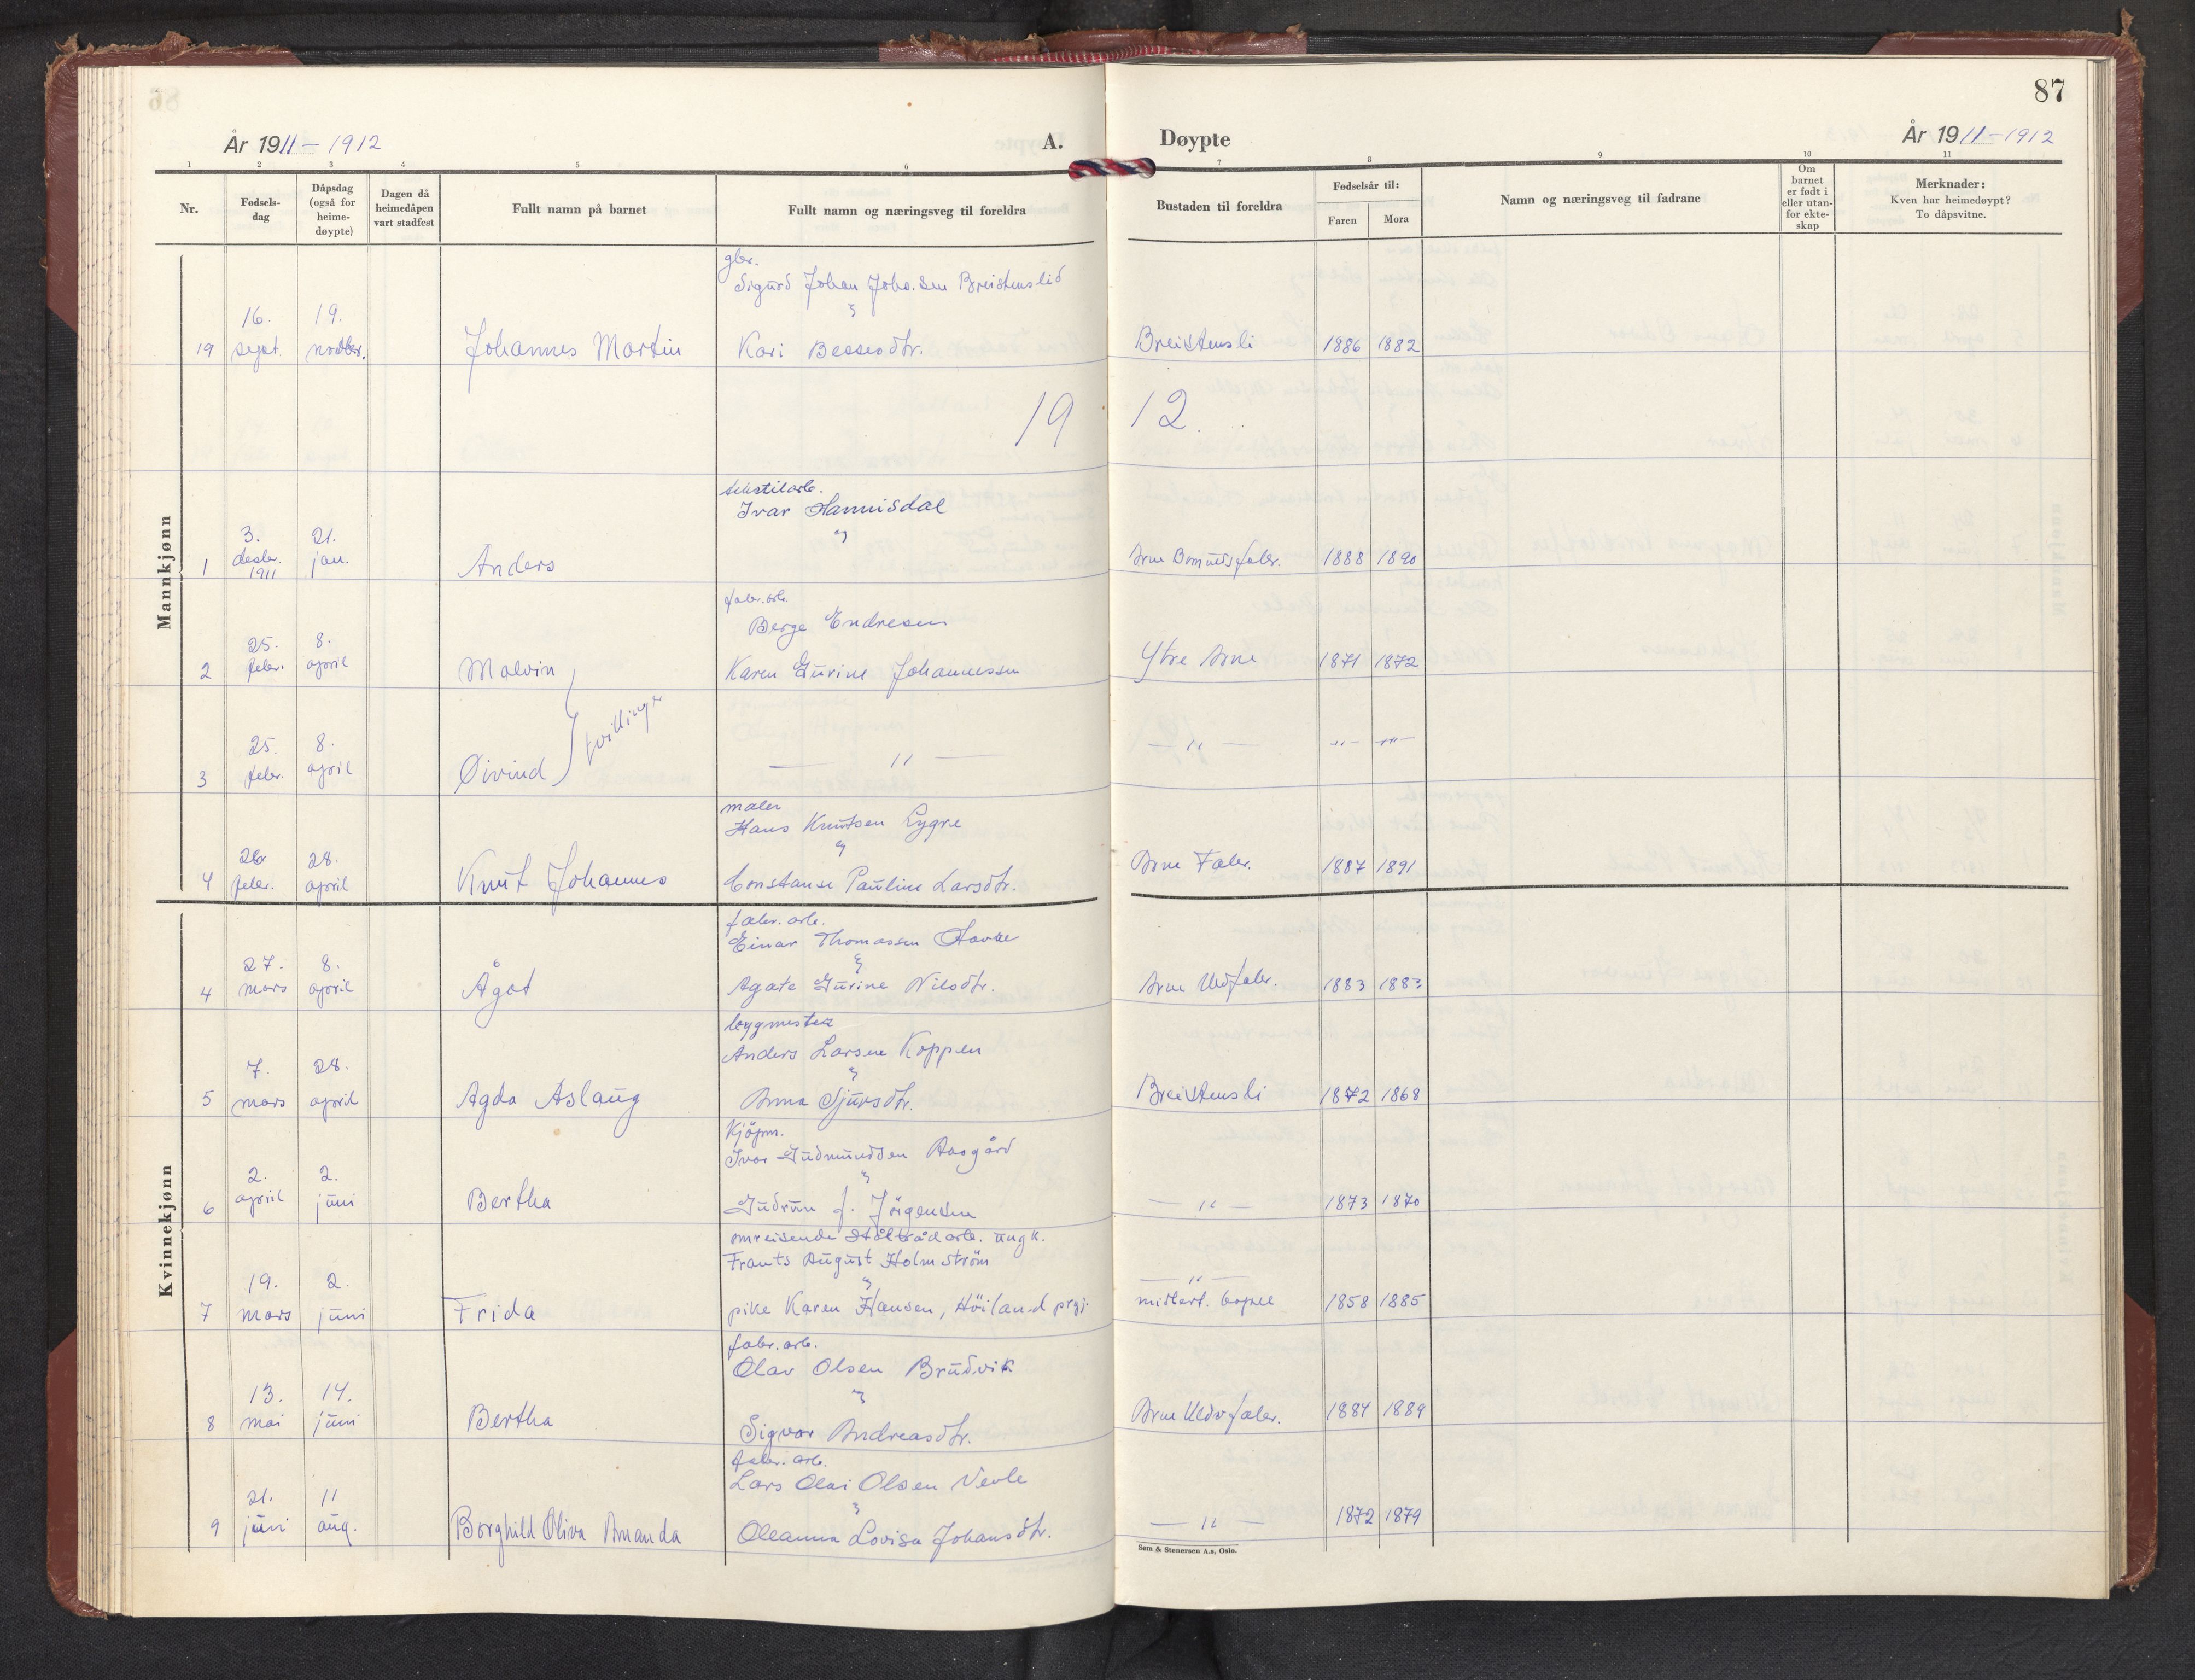 87
År 1911 - 1912
A.
Døypte
År 1911 - 1912
1 2 3 4 5 6 7 8 9 10 11
Nr.
Fødsels-
dag
Dåpsdag
(også for
heime-
døypte)
Dagen då
heimedåpen
vart stadfest
Fullt namn på barnet
Fullt namn og næringsveg til foreldra
Bustaden til foreldra
Fødselsår til:
Faren Mora
Namn og næringsveg til fadrane
Om
barnet
er født i
eller utan-
for ekte-
skap
Merknader:
Kven har heimedøypt?
To dåpsvitne.
Mannkjønn
gbr.
Sigurd Johan Johs.sen Breistenslid
16. 19.
19 sept. Johannes Martin Kari Bessesdtr. Breistensli 1886 1882
19 12.
tekstilarb.
Ivar Hannisdal
"
3. 21.
1 desbr. jan. Anders Arne Bomuldsfabr. 1888 1890
1911
fabr.arb.
Berge Endresen
25. 8.
2 febr. april Malvin Karen Gurine Johannessen Ytre Arne 1871 1872
tvillinger
25. 8.
3 febr. april Øivind — " — — " — — " — — " —
maler
Hans Knutsen Lygre
"
26 28.
4 febr. april Knut Johannes Constanse Pauline Larsdtr. Arne Fabr. 1887 1891
Kvinnekjønn
fabr. arb.
Einar Thomassen Havre
"
27. 8.
4 mars april Ågot Agate Gurine Nilsdtr. Arne Uldfabr. 1883 1883
bygmester
Anders Larsen Koppen
"
7. 28.
5 mars april Agda Aslaug Anna Sjursdtr. Breistensli 1872 1868
Kjöpm.
Ivar Gudmundsen Aasgård
"
2. 2.
6 april juni Bertha Gudrun J. Jörgensen — " — 1873 1870
omreisende Ståltrådarb. ungk.
Frants August Holmström
"
19. 2. — " —
7 mars juni Frida pike Karen Hansen, Höiland prgj. midlert. 1858 1885
fabr. arb.
Olav Olsen Brudvik
"
13. 14.
8 mai juni Bertha Sigvor Andreasdtr. Arne Uldvfabr. 1884 1889
fabr. arb.
Lars Olai Olsen Nevle
"
21. 11
9 juni aug. Borghild Oliva Amanda Oleanna Lovisa Johansdtr. — " — 1872 1879
Sem & Stenersen A.s, Oslo.